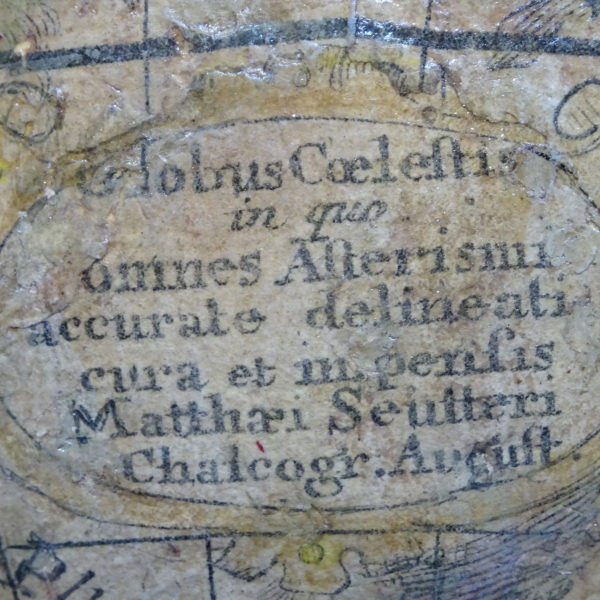 Globus Cœleſtis
in quo
omnes Aſterismi
accurate delineati
cura et impenſis
Matthæi Seutteri
Chalcogr. Auguſt.